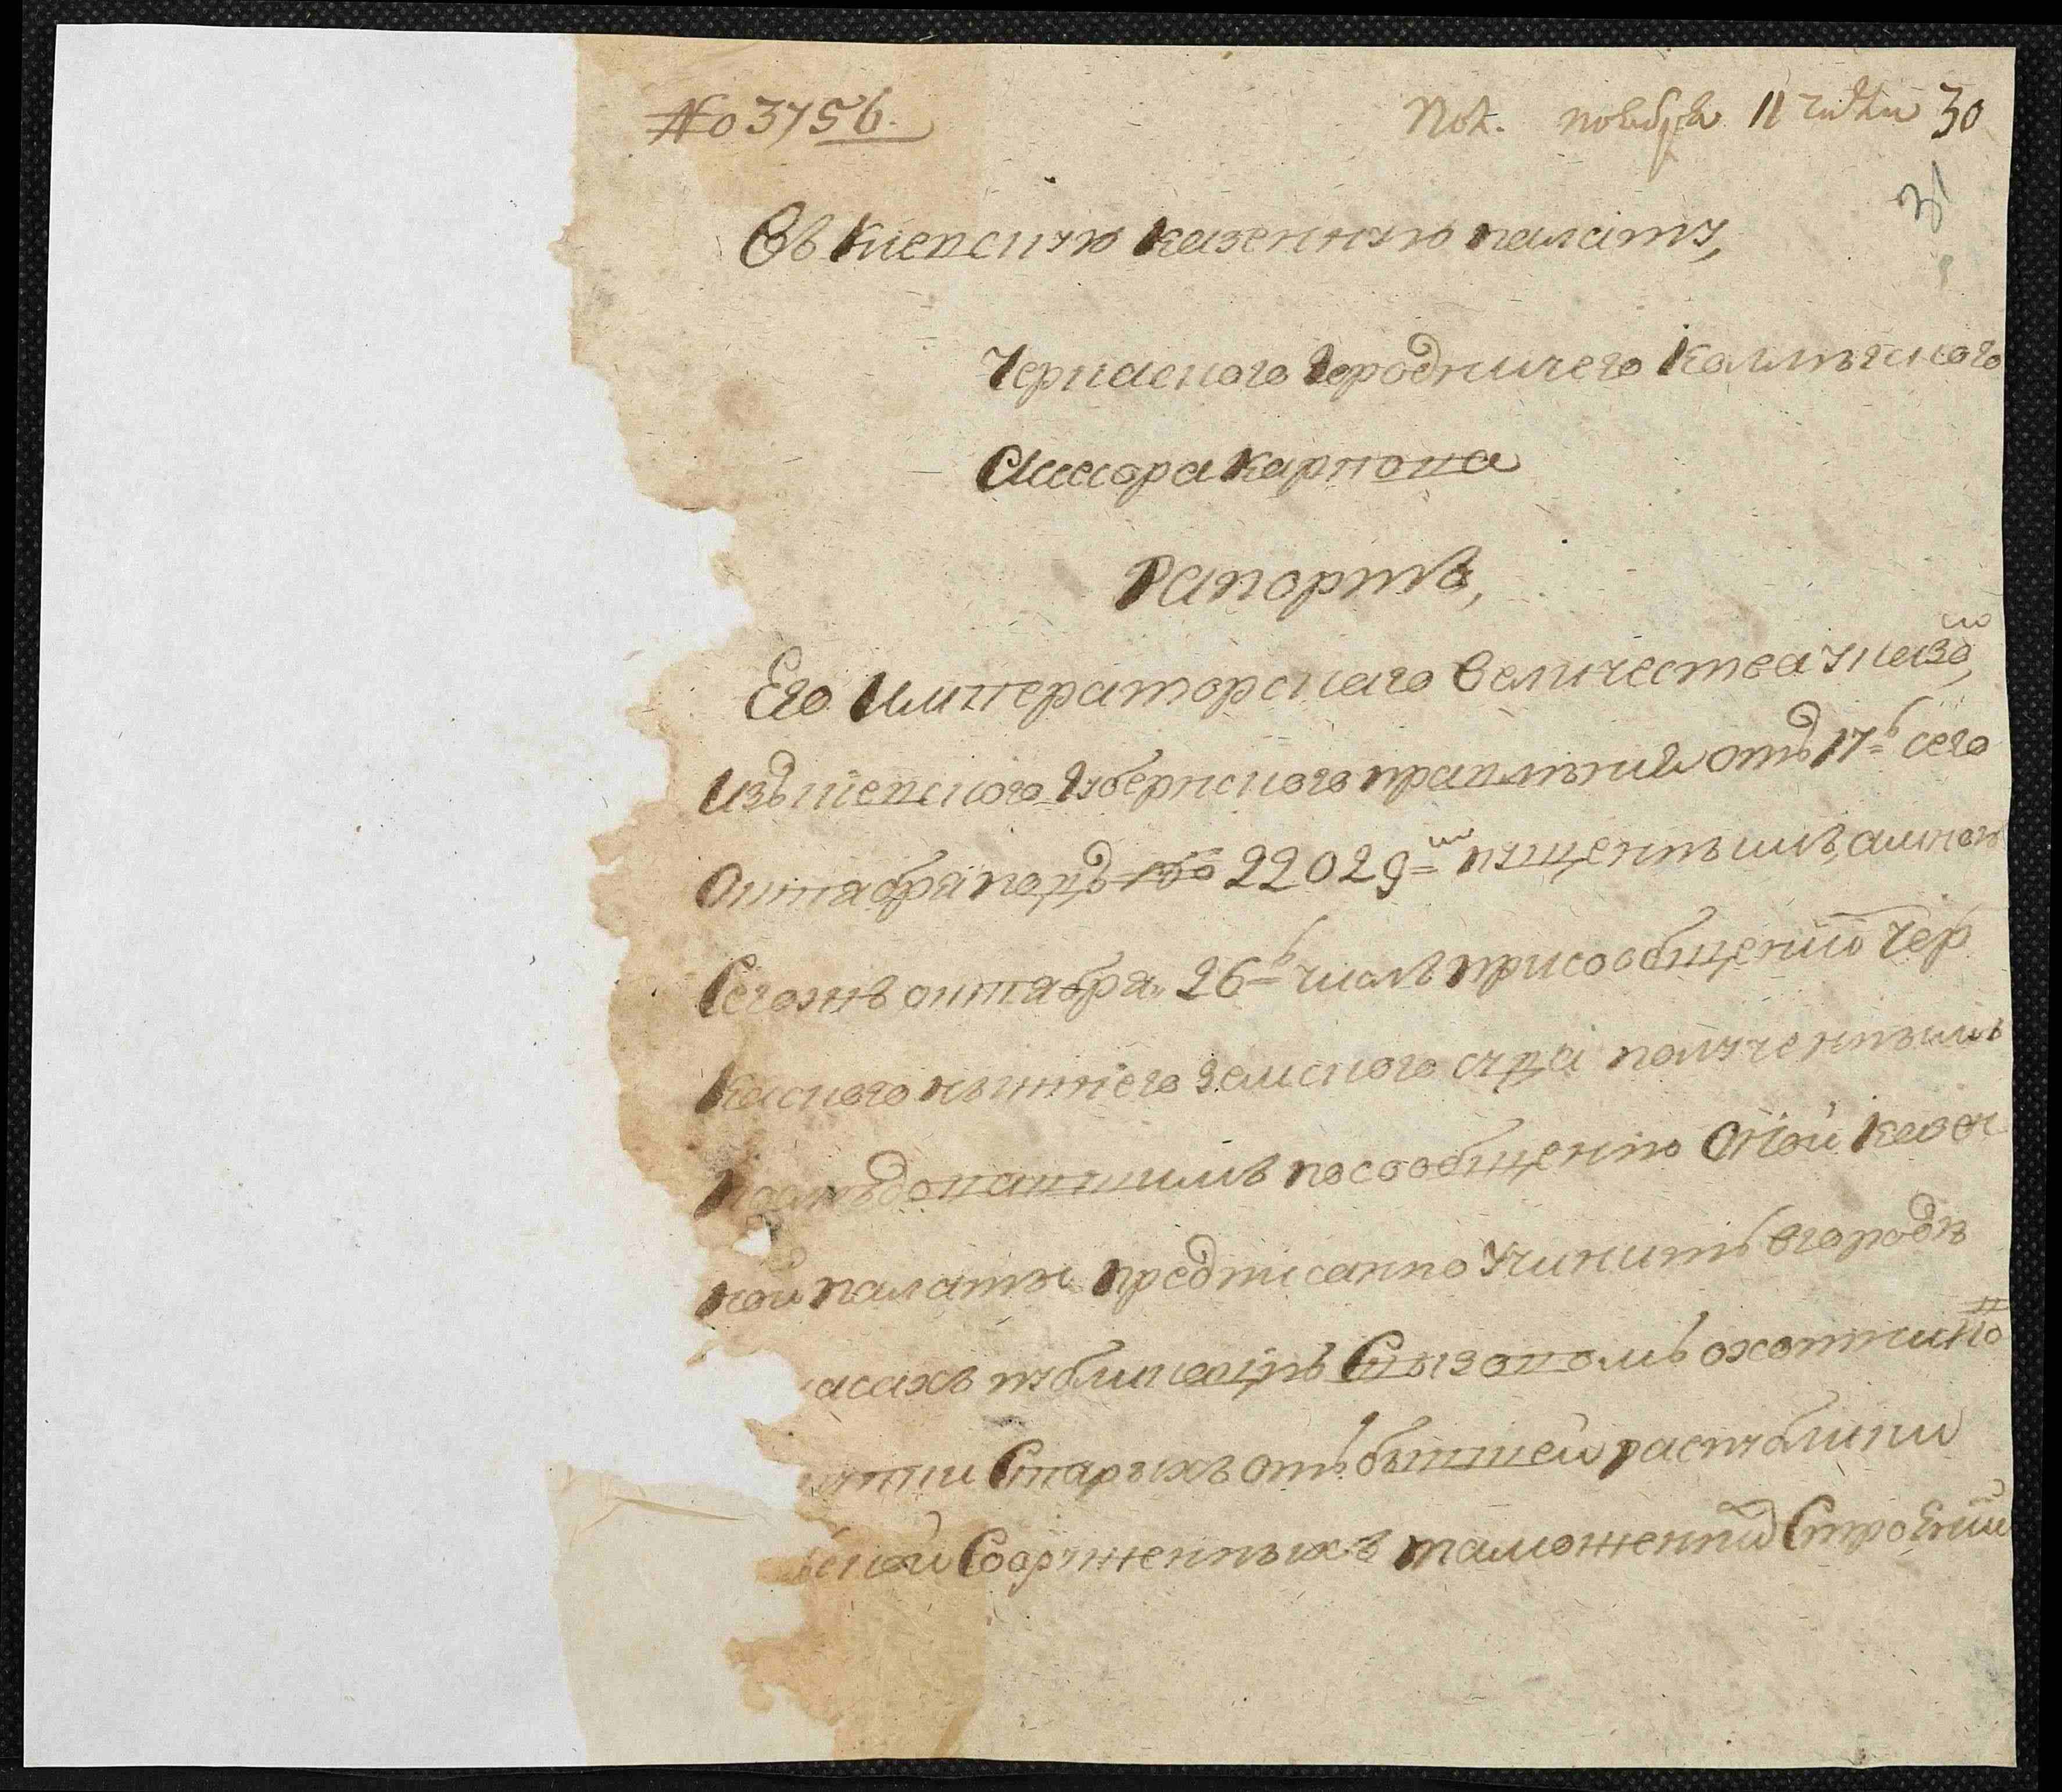 № 3756.
Пол. ноября 11 30
31
Въ Киевскую казенную палату,
Черкаского городничего Колежского
Асесора Карпова
Рапортъ,
Его Императорскаго Величества указо,мъ
изъ Киевского губернского правления отъ 17ь сего
октября подъ № 22029=мъ пущеннымъ, а мною
Сегожъ октября 26ь числа при сообщении Чер
каского нижнего земского суда полученнымъ
последовавшимъ по сообщению оной казен
ной палаты предписанно учинить въ городе
асахъ публикацию Свызовомъ охотниковъ
Старыхъ отъ бывшей распублики
ской Сооруженныхъ таможенныхъ Строений